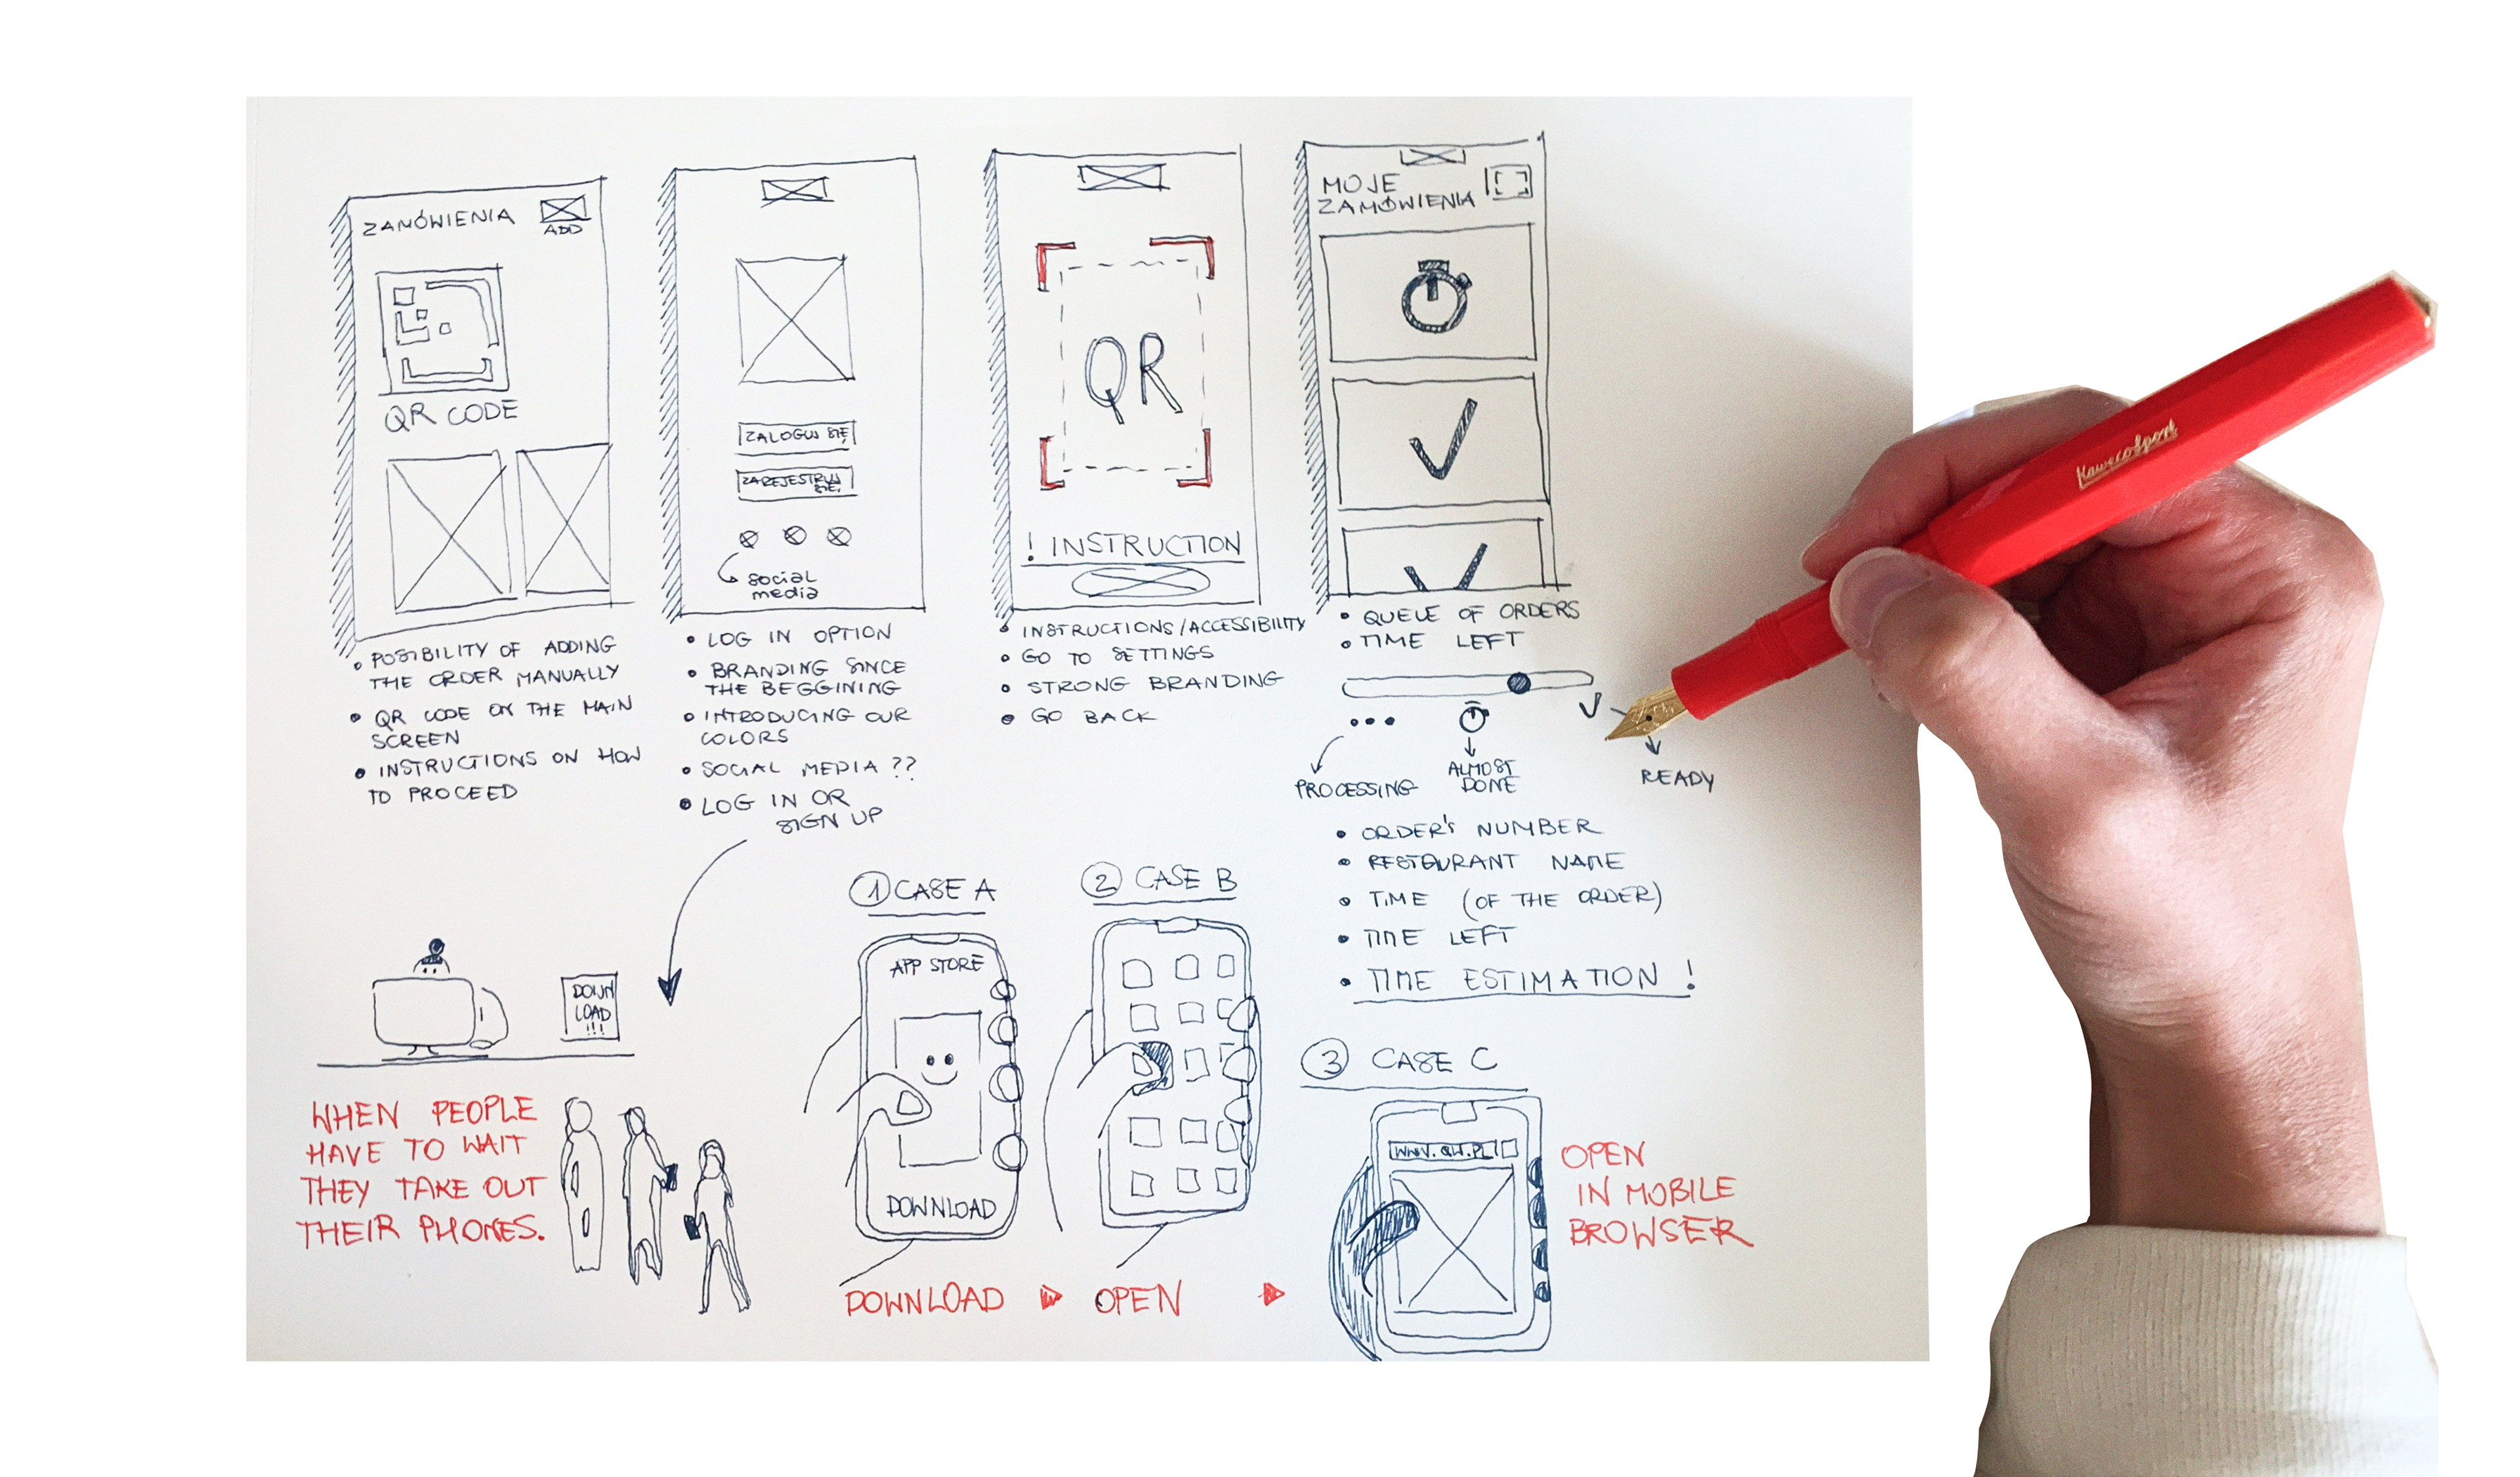 ZAMÓWIENIA
ADD
QR CODE
• POSIBILITY OF ADDING
THE ORDER MANUALLY
• QR CODE ON THE MAIN
SCREEN
• INSTRUCTIONS ON HOW
TO PROCEED
ZALOGUJ SIĘ
ZAREJESTRUJ
SIĘ
social
media
• LOG IN OPTION
• BRANDING SINCE
THE BEGGINING
• INTRODUCING OUR
COLORS
• SOCIAL MEDIA ??
• LOG IN OR
SIGN UP
QR
! INSTRUCTION
• INSTRUCTIONS/ACCESSIBILITY
• GO TO SETTINGS
• STRONG BRANDING
• GO BACK
MOJE
ZAMÓWIENIA
• QUEUE OF ORDERS
• TIME LEFT
PROCESSING
ALMOST
DONE
READY
• ORDER'S NUMBER
• RESTAURANT NAME
• TIME (OF THE ORDER)
• TIME LEFT
• TIME ESTIMATION !
KawecoSport
DOWN
LOAD
!!!
WHEN PEOPLE
HAVE TO WAIT
THEY TAKE OUT
THEIR PHONES.
1 CASE A
APP STORE
DOWNLOAD
DOWNLOAD
2 CASE B
OPEN
3 CASE C
WWW.QW.PL
OPEN
IN MOBILE
BROWSER